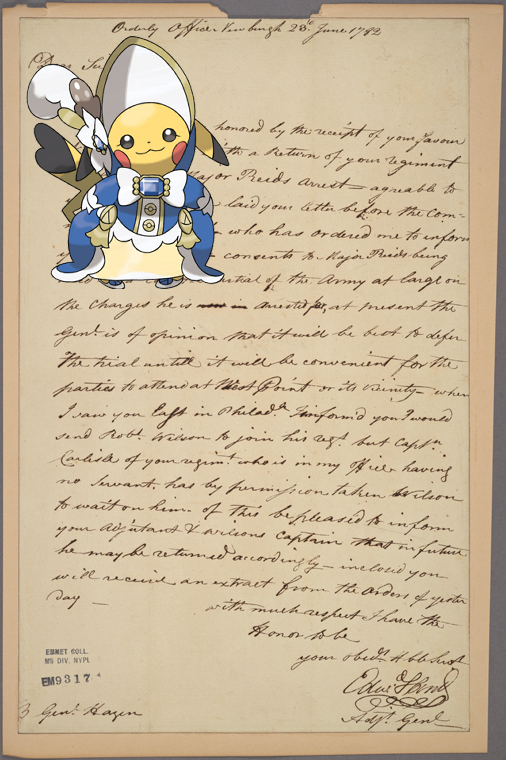 Orderly Office Newburgh 23d June 1782
honored by the receipt of your favour
with a Return of your regiment
Major Reids Arrest — agreable to
laid your letter before the Com-
who has ordered me to inform
consents to Major Reids being
Martial of the Army at large on
the charges he is arrested for, at present the
Genl is of opinion that it will be best to defer
the trial untill it will be convenient for the
parties to attend at West Point or its vicinity — when
I saw you last in Philada I inform'd you I would
send Robt Wilson to join his regt but Captn
Carlisle of your regimt who is in my office having
no servant, has by permission taken Wilson
to wait on him — of this be pleased to inform
your Adjutant & Wilsons Captain that in future
he may be returned accordingly — inclosed you
will receive an extract from the orders of yester
day —
with much respect I have the
Honor to be
your obedt Hble Servt
Edwd Hand
Adjt Genl
EMMET COLL.
MS DIV. NYPL
EM9317
Genl Hazen